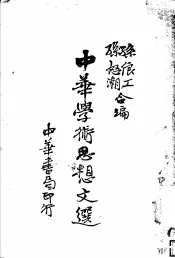 孫俍工
孫怒潮
合編
中華學術思想文選
中華書局印行